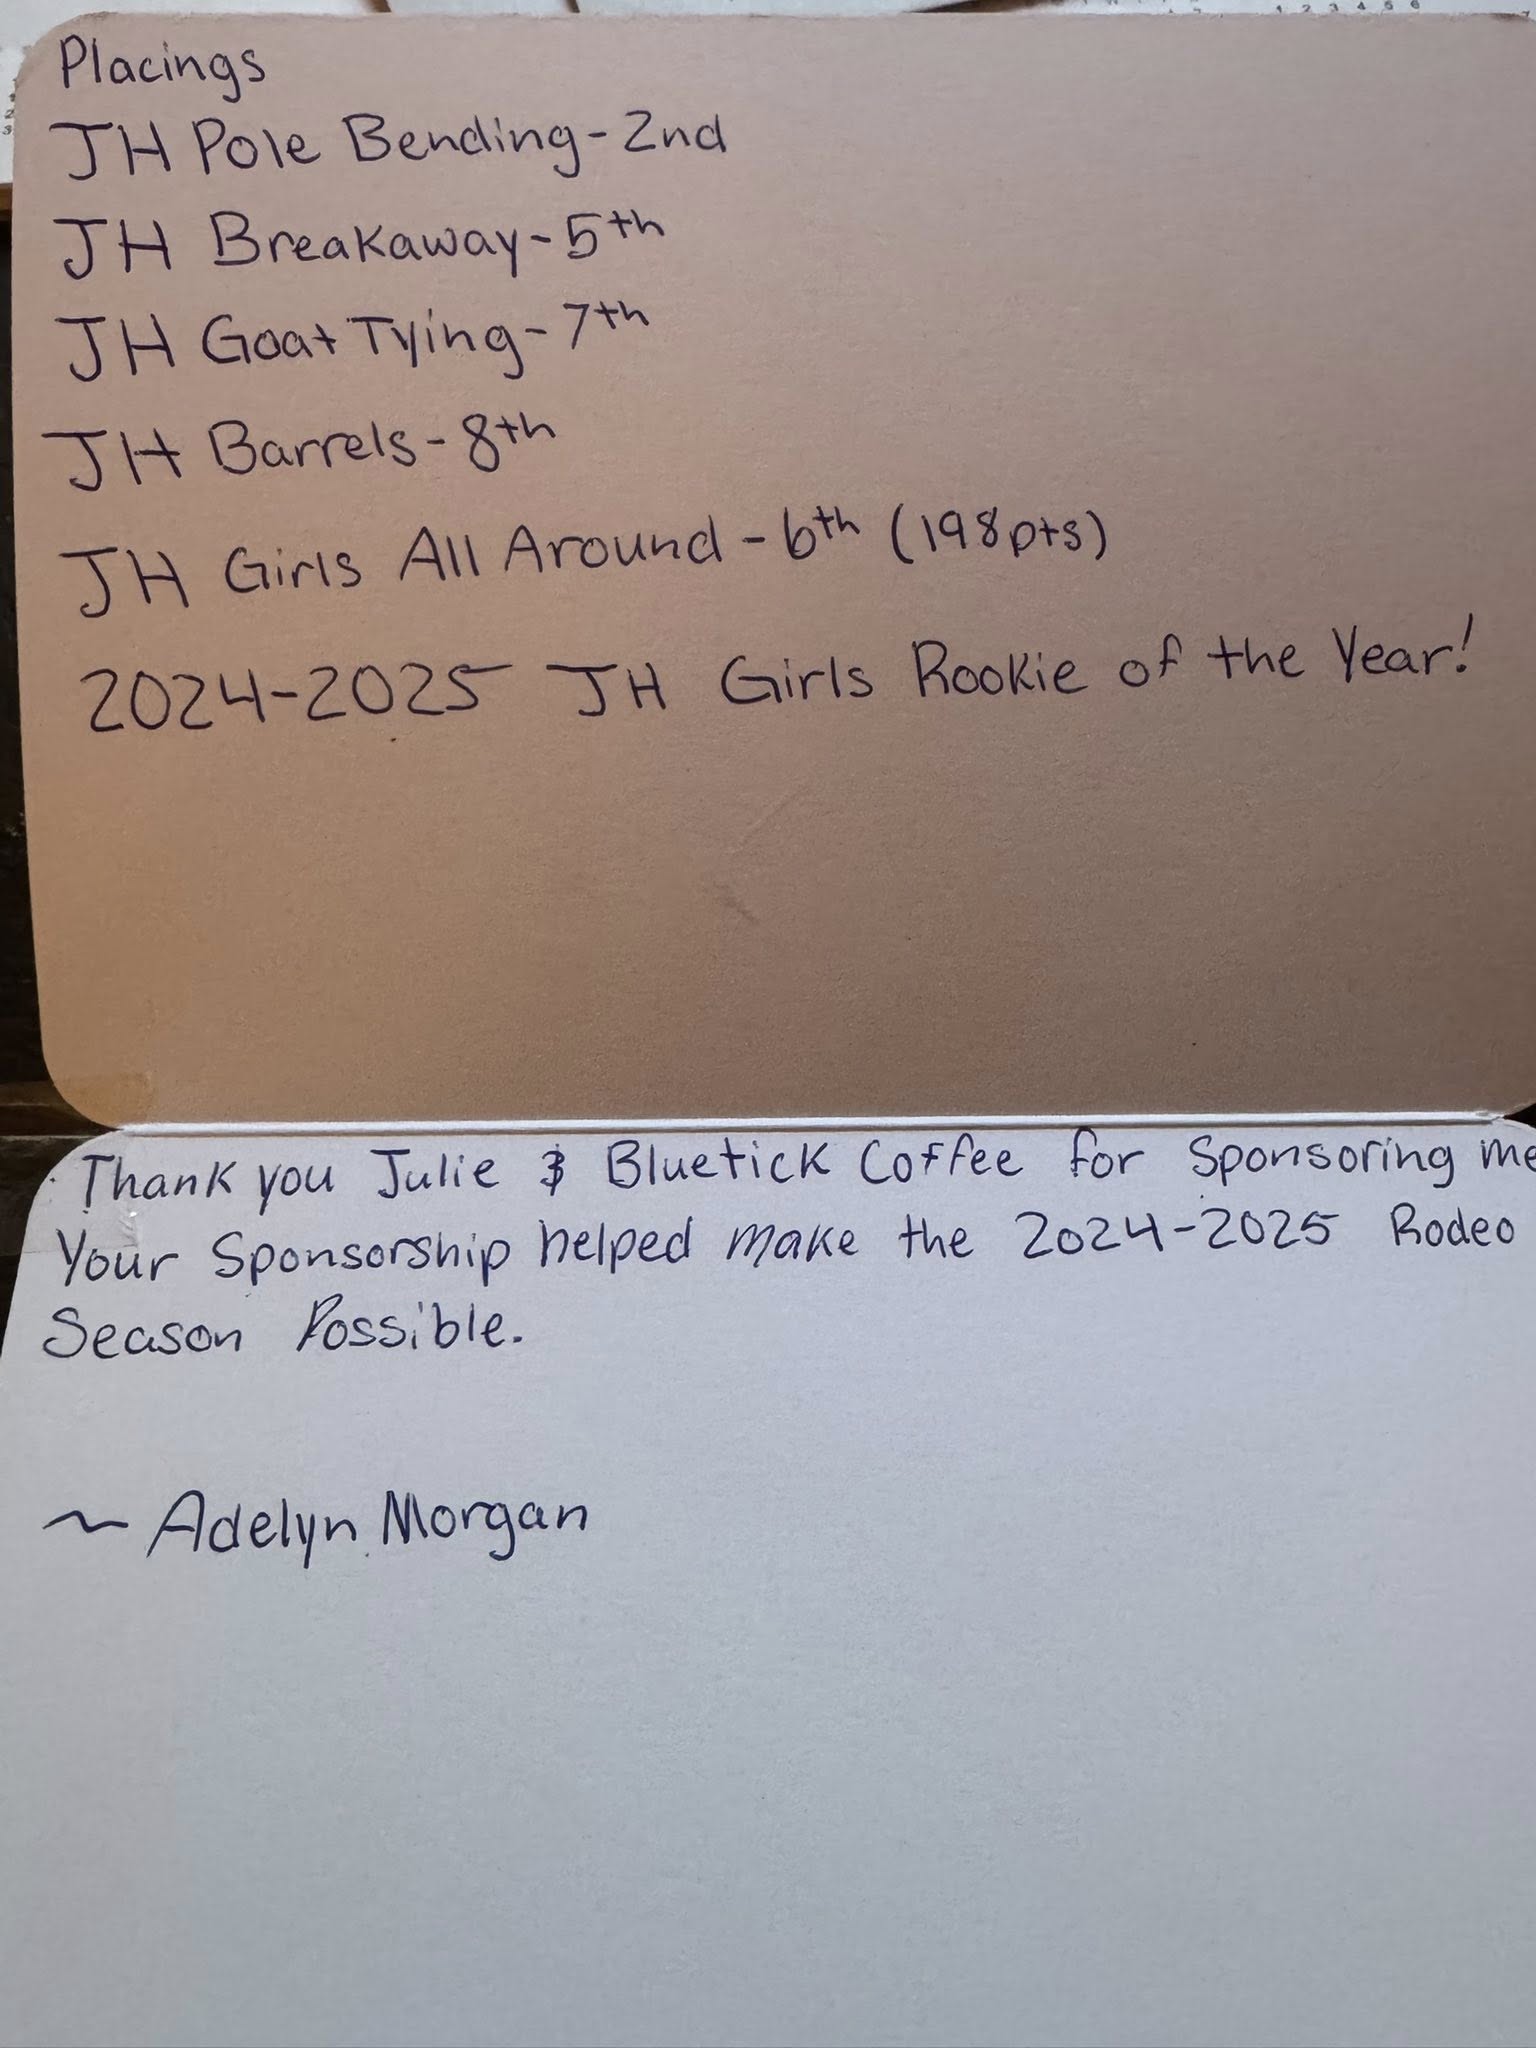 Placings
JH Pole Bending-2nd
JH Breakaway-5th
JH Goat Tying-7th
JH Barrels-8th
JH Girls All Around-6th (198pts)
2024-2025 JH Girls Rookie of the Year!
Thank you Julie & Bluetick Coffee for Sponsoring me
Your Sponsorship helped make the 2024-2025 Rodeo
Season Possible.
~ Adelyn Morgan